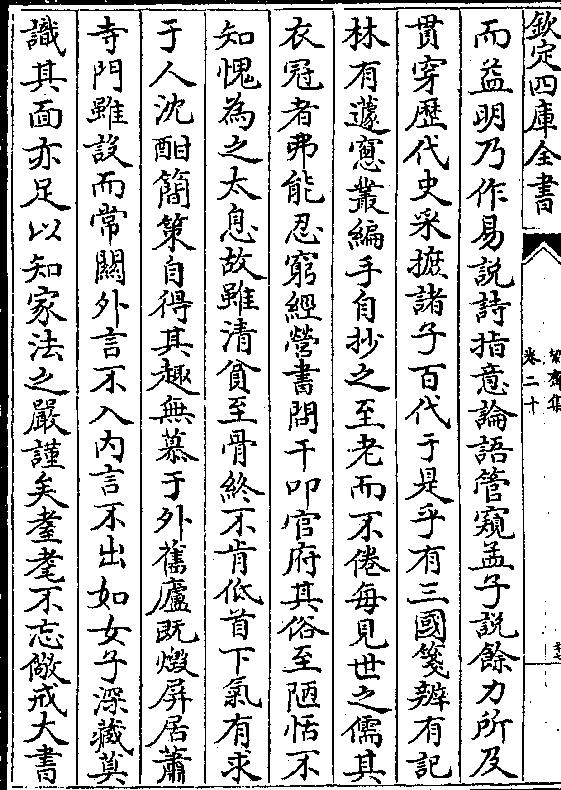 欽定四庫全書
卷二十
而益明乃作易説詩指意論語管窺孟子説餘力所及
貫穿歴代史采摭諸子百代于是乎有三國箋辨有記
林有蘧窻叢編手自抄之至老而不倦每見世之儒其
衣冠者弗能忍窮經營書問干叩官府其俗至陋恬不
知愧為之太息故雖清貧至骨終不肯低首下氣有求
于人沈酣簡策自得其趣無慕于外舊廬既燬屏居蕭
寺門雖設而常闗外言不入内言不出如女子深藏莫
識其面亦足以知家法之嚴謹矣耋耄不忘儆戒大書